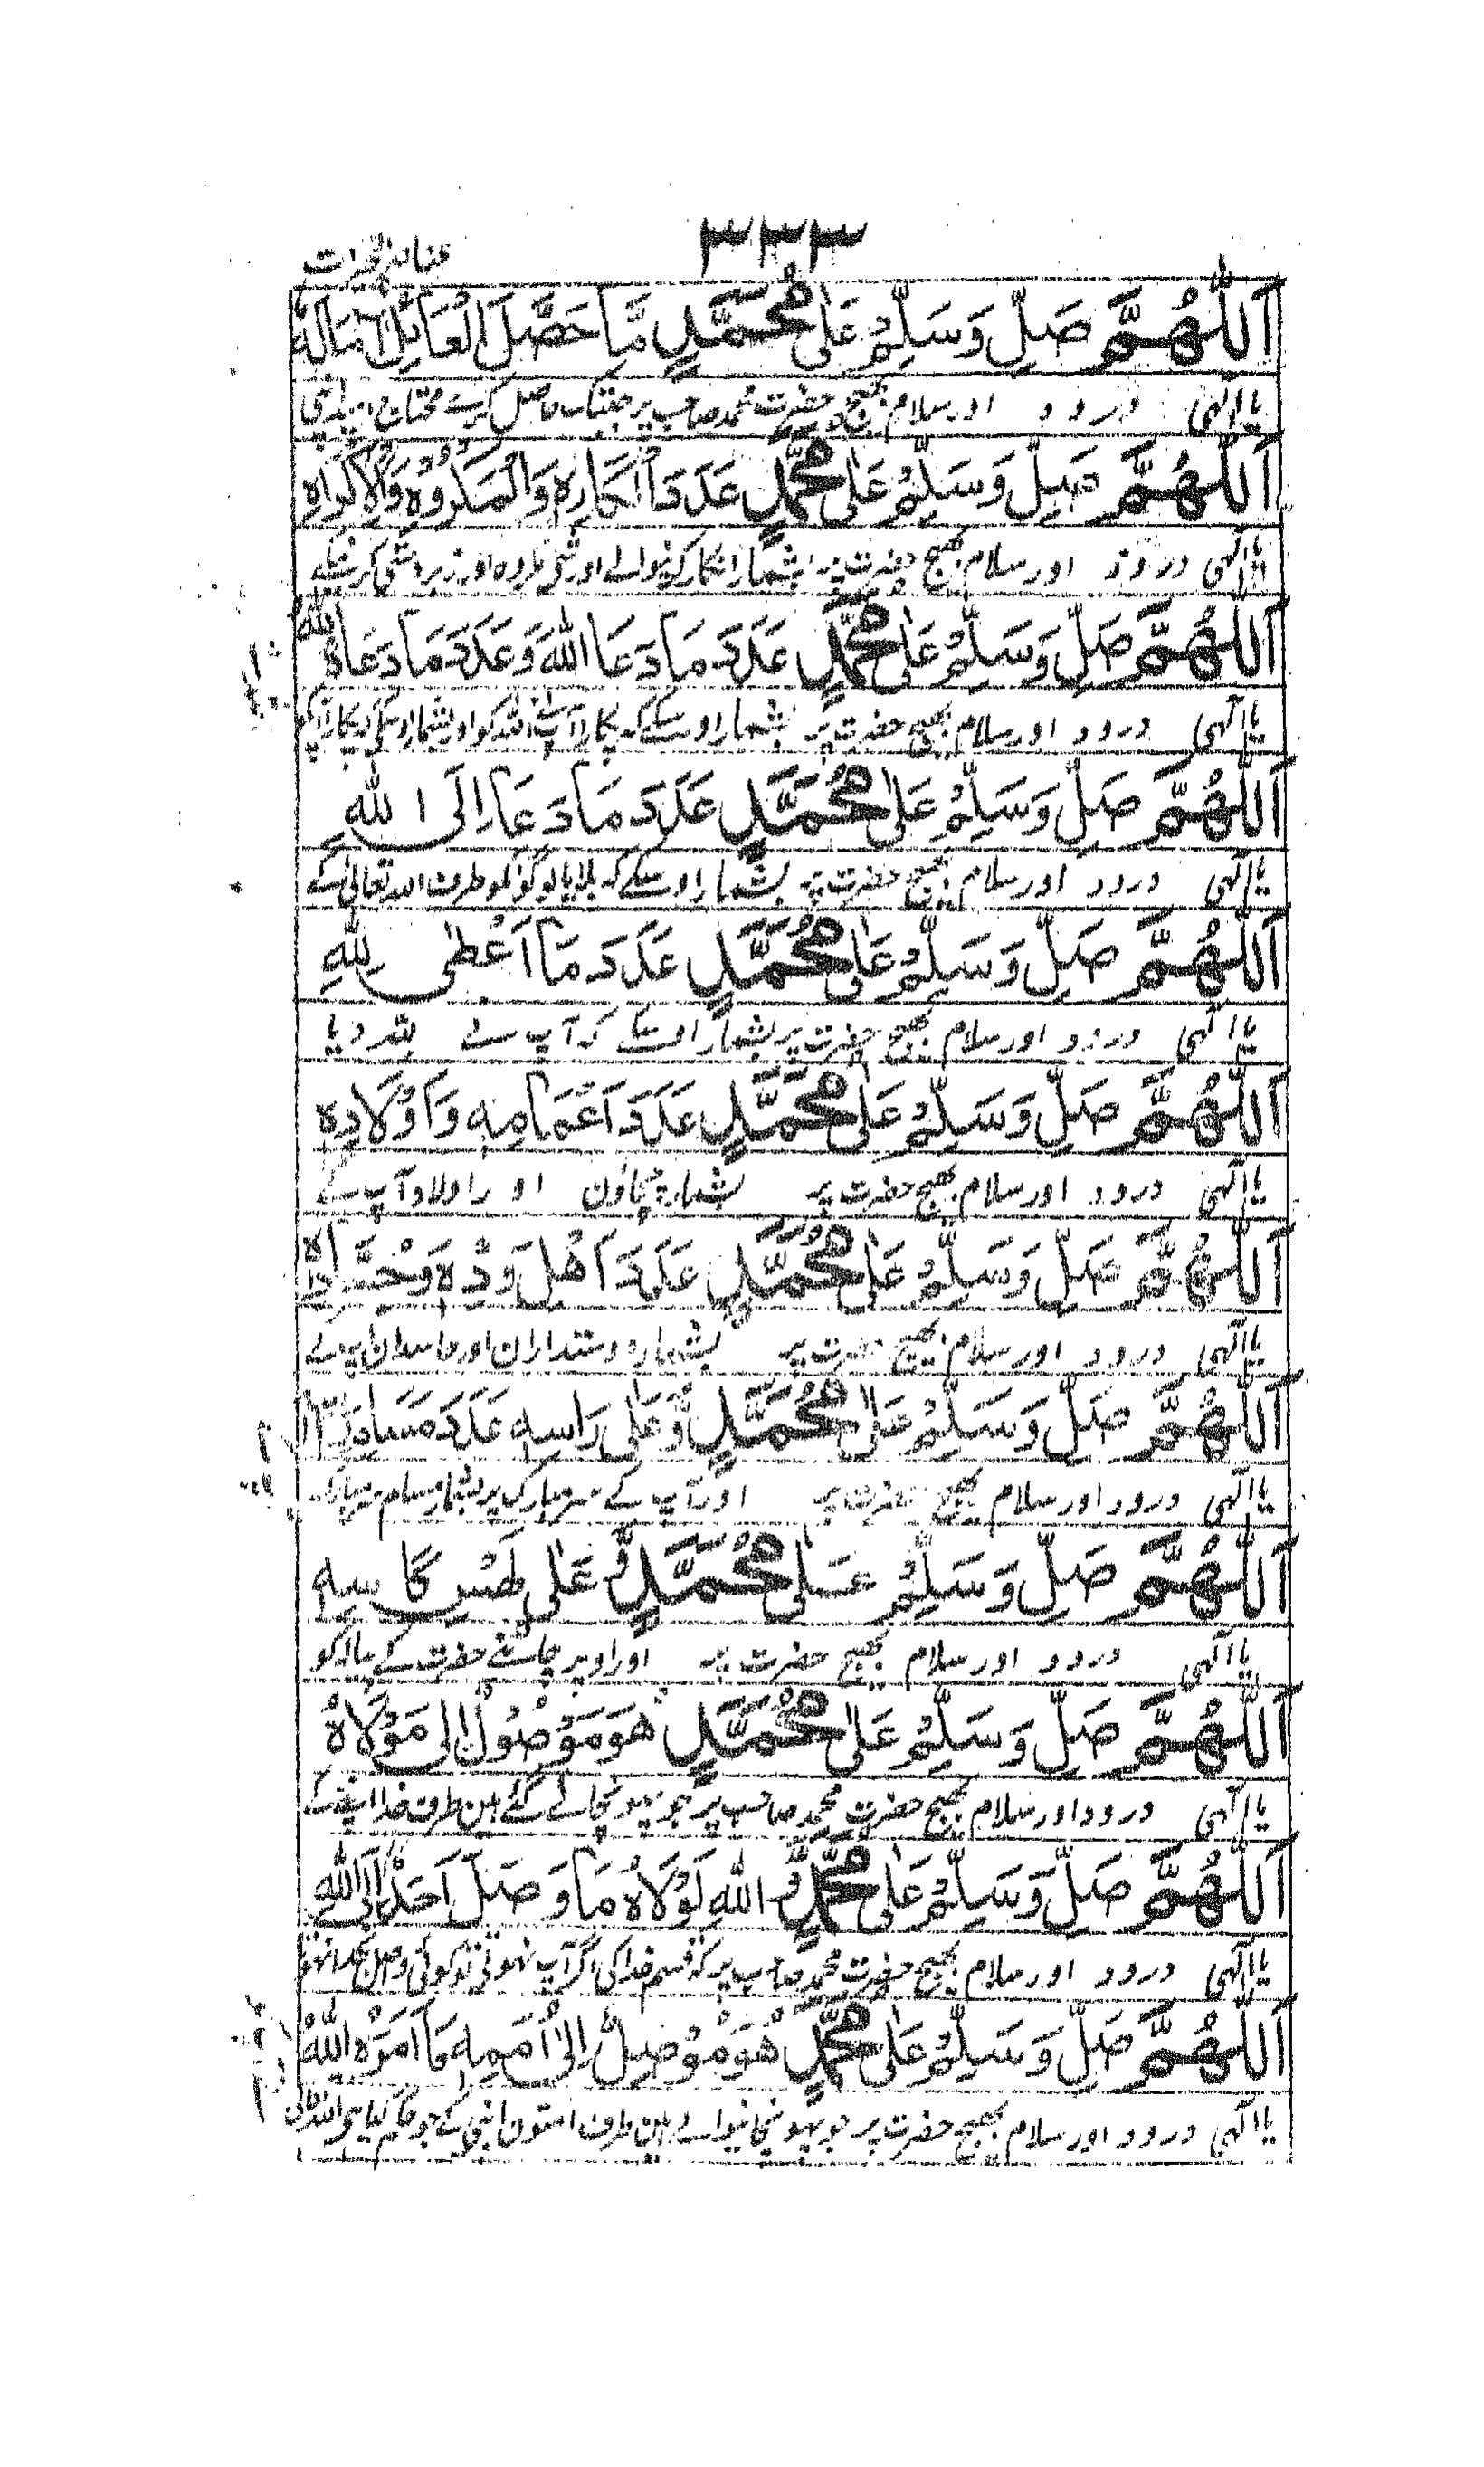 ٣٣٣
اَللّٰهُمَّ صَلِّ وَسَلِّمْ عَلٰی مُحَمَّدٍ مَّا حَصَّلَ الْعَآئِلُ مَنَالَهٗ
یا الٰہی درود اور سلام بھیج حضرت محمد صاحب پر جبتک حاصل کرے محتاج
اَللّٰهُمَّ صَلِّ وَسَلِّمْ عَلٰی مُحَمَّدٍ عَدَدَ
یا الٰہی درود اور سلام بھیج حضرت پر بشمار انکار کرنیوالے اور
اَللّٰهُمَّ صَلِّ وَسَلِّمْ عَلٰی مُحَمَّدٍ عَدَدَ مَا دَعَا اللّٰهَ وَعَدَدَ مَا دَعَاهُ اللّٰهُ
یا الٰہی درود اور سلام بھیج حضرت پر بشمار اوسکے کہ پکارا آپنے اللہ کو اور بشمار اوسکے کہ پکارا آپکو
اَللّٰهُمَّ صَلِّ وَسَلِّمْ عَلٰی مُحَمَّدٍ عَدَدَ مَا دَعَا اِلَی اللّٰهِ
یا الٰہی درود اور سلام بھیج حضرت پر بشمار اوسکے کہ بلایا لوگونکو طرف اللہ تعالیٰ کے
اَللّٰهُمَّ صَلِّ وَسَلِّمْ عَلٰی مُحَمَّدٍ عَدَدَ مَا اَعْطٰی لِلّٰهِ
یا الٰہی درود اور سلام بھیج حضرت پر بشمار اوسکے کہ آپ نے للہ دیا
اَللّٰهُمَّ صَلِّ وَسَلِّمْ عَلٰی مُحَمَّدٍ عَدَدَ اَعْمَامِهٖ وَاَوْلَادِهٖ
یا الٰہی درود اور سلام بھیج حضرت پر بشمار چچاؤن اور اولاد آپ کے
اَللّٰهُمَّ صَلِّ وَسَلِّمْ عَلٰی مُحَمَّدٍ عَدَدَ اَهْلِ وُدِّهٖ
یا الٰہی درود اور سلام بھیج حضرت پر بشمار دوستداران اور حاسدان
اَللّٰهُمَّ صَلِّ وَسَلِّمْ عَلٰی مُحَمَّدٍ وَّعَلٰی رَاسِهٖ عَدَدَ
یا الٰہی درود اور سلام بھیج حضرت پر اور آپ کے سر مبارک پر بشمار مسام
اَللّٰهُمَّ صَلِّ وَسَلِّمْ عَلٰی مُحَمَّدٍ وَّعَلٰی كَاسِهٖ
یا الٰہی درود اور سلام بھیج حضرت پر اور اوپر چاٹنے حضرت کے پیالہ کو
اَللّٰهُمَّ صَلِّ وَسَلِّمْ عَلٰی مُحَمَّدٍ هُوَ مَوْصُوْلٌ اِلٰی مَوْلَاهُ
یا الٰہی درود اور سلام بھیج حضرت محمد صاحب پر جو پہونچائے گئے ہین طرف خدا اپنے کے
اَللّٰهُمَّ صَلِّ وَسَلِّمْ عَلٰی مُحَمَّدٍ وَّاللّٰهِ لَوْلَاهُ مَا وَصَلَ اَحَدٌ اِلَی اللّٰهِ
یا الٰہی درود اور سلام بھیج حضرت محمد صاحب پر کہ قسم خدا کی اگر آپ نہوتی تو کوئی واصل بخدا نہوتا
اَللّٰهُمَّ صَلِّ وَسَلِّمْ عَلٰی مُحَمَّدٍ هُوَ مُوْصِلٌ اِلٰی اُمَمِهٖ مَا اَمَرَهُ اللّٰهُ
یا الٰہی درود اور سلام بھیج حضرت پر جو پہونچانیوالے ہین طرف امتون اپنی کے جو حکم کیا ہی اللہ تعالیٰ